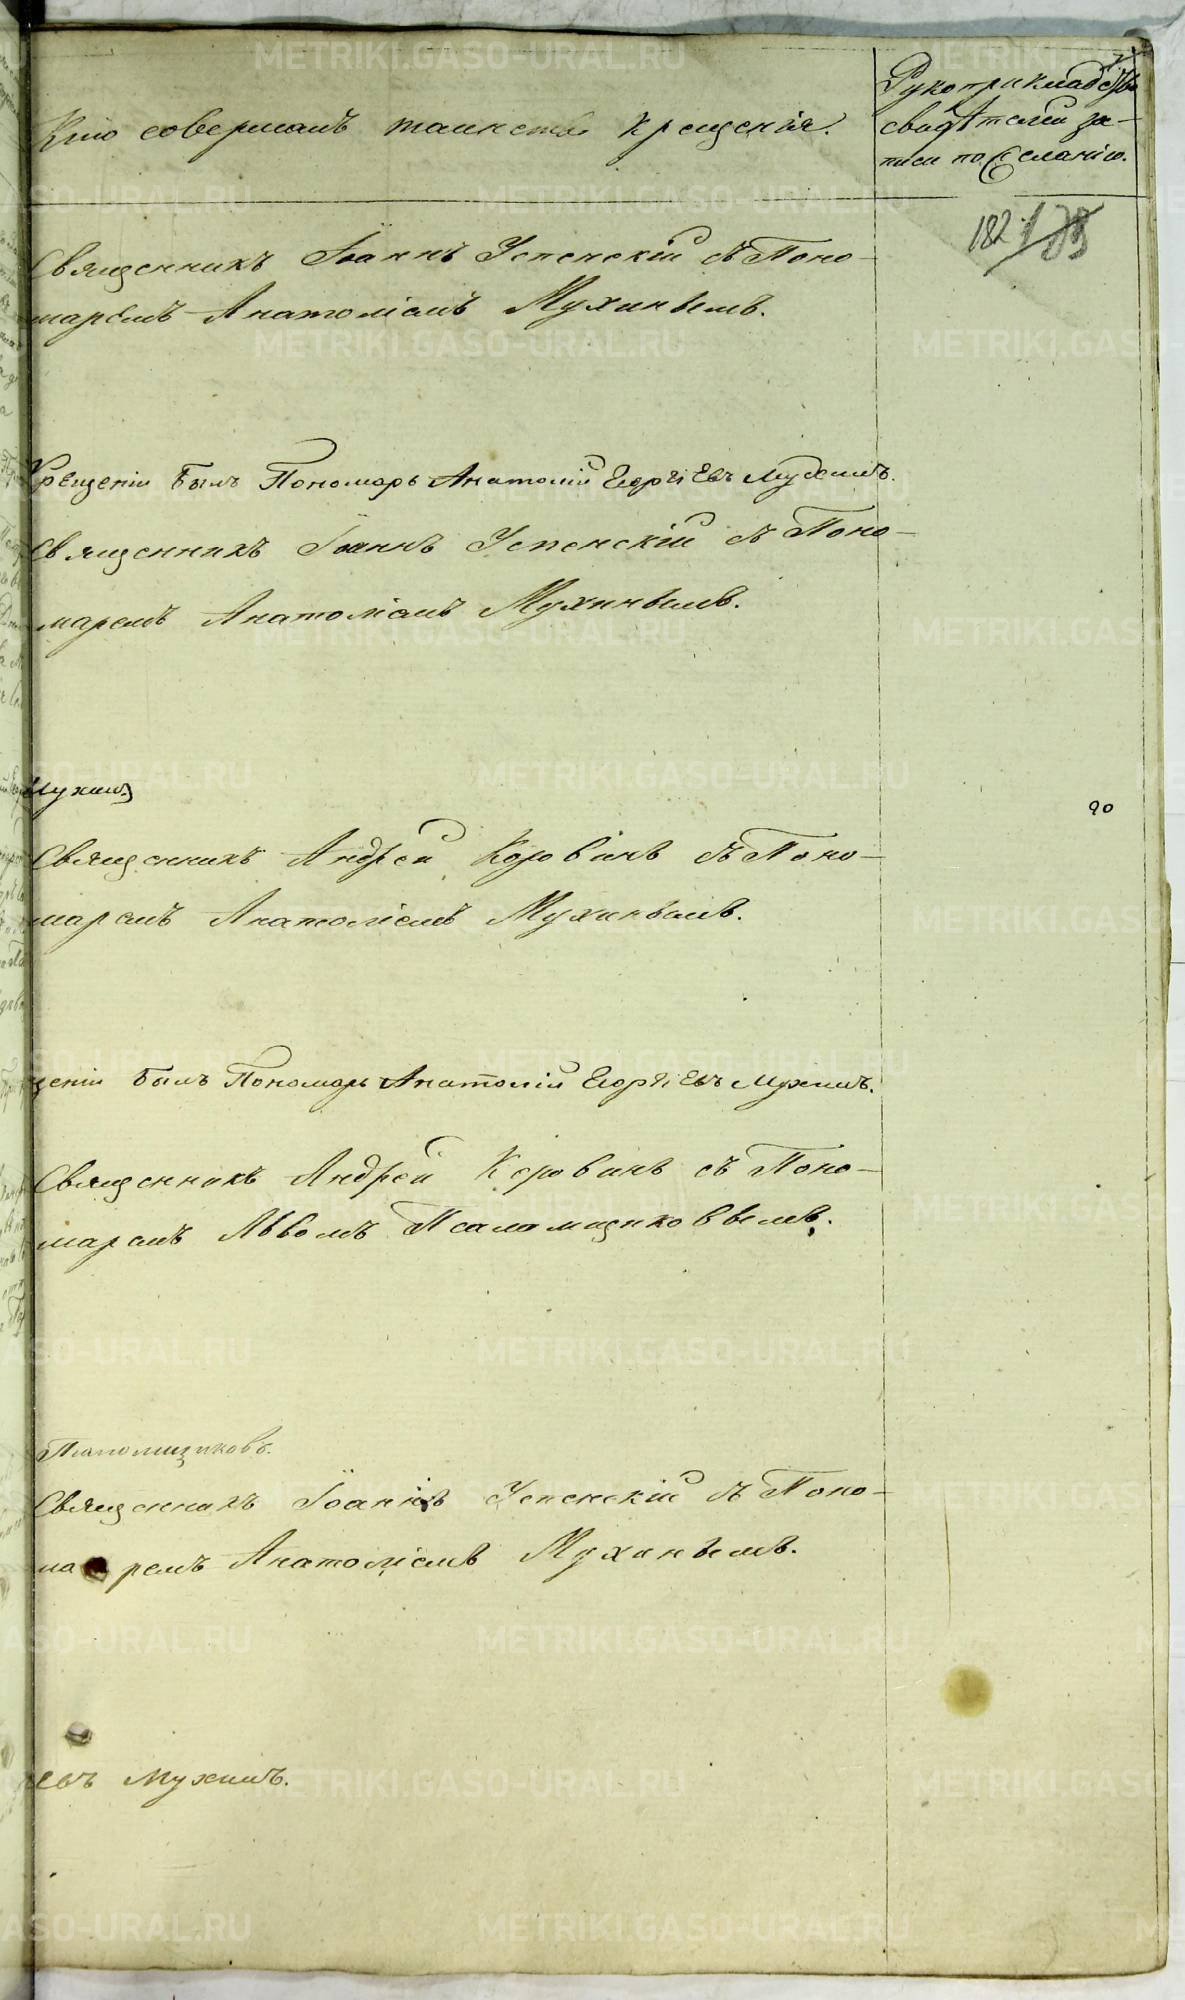 Кто совершалъ таинство крещенія.
Рукоприкладство
свидѣтелей за-
писи по желанію.
182
Священникъ Іоаннъ Успенскій съ Поно-
маремъ Анатоліемъ Мухинымъ.
Крещеніи былъ Пономарь Анатолій Георгіевъ Мухинъ.
Священникъ Іоаннъ Успенскій съ Поно-
маремъ Анатоліемъ Мухинымъ.
Мухинъ
90
Священникъ Андрей Коровинъ съ Поно-
маремъ Анатоліемъ Мухинымъ.
щеніи былъ Пономарь Анатолій Георгіевъ Мухинъ.
Священникъ Андрей Коровинъ съ Поно-
маремъ Львомъ Псаломщиковымъ.
Псаломщиковъ.
Священникъ Іоаннъ Успенскій съ Поно-
маремъ Анатоліемъ Мухинымъ.
евъ Мухинъ.
METRIKI.GASO-URAL.RU